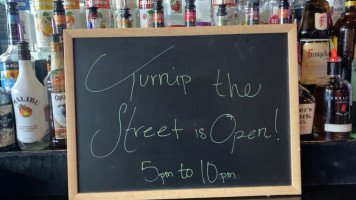 Turnip the
Street is Open!
5pm to 10pm
MALIBU